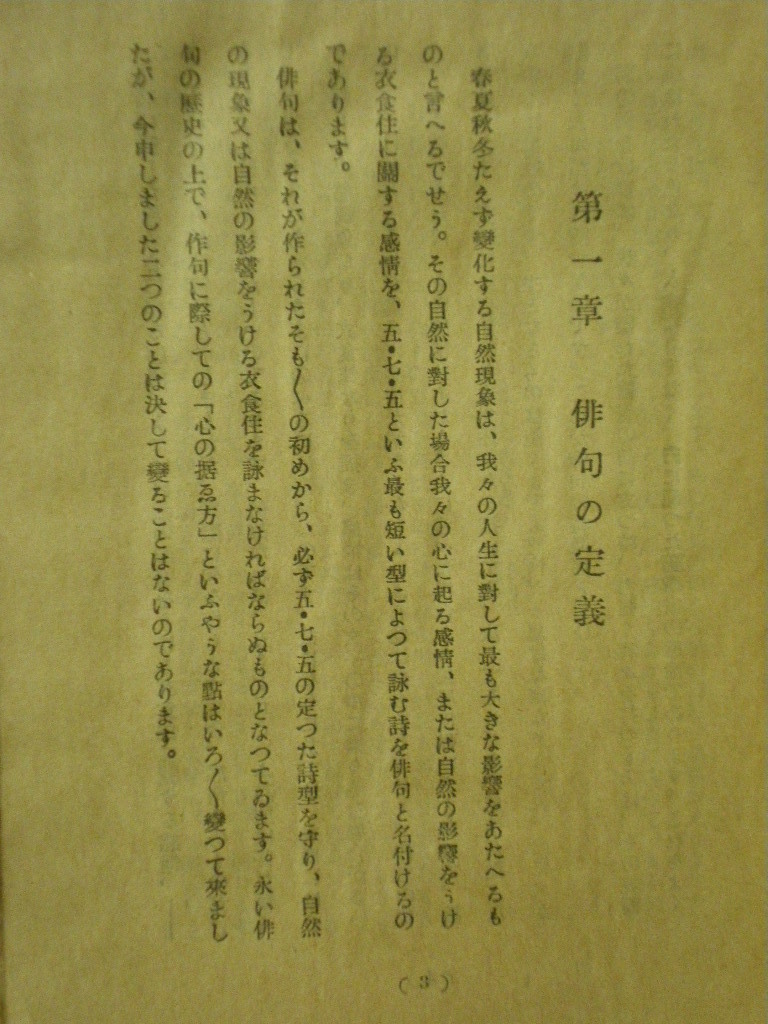 第一章 俳句の定義
春夏秋冬たえず變化する自然現象は、我々の人生に對して最も大きな影響をあたへるも
のと言へるでせう。その自然に對した場合我々の心に起る感情、または自然の影響をうけ
る衣食住に關する感情を、五・七・五といふ最も短い型によつて詠む詩を俳句と名付けるの
であります。
俳句は、それが作られたそも〱の初めから、必ず五・七・五の定つた詩型を守り、自然
の現象又は自然の影響をうける衣食住を詠まなければならぬものとなつてゐます。永い俳
句の歷史の上で、作句に際しての「心の据ゑ方」といふやうな點はいろ〱變つて來まし
たが、今申しました二つのことは決して變ることはないのであります。
(3)